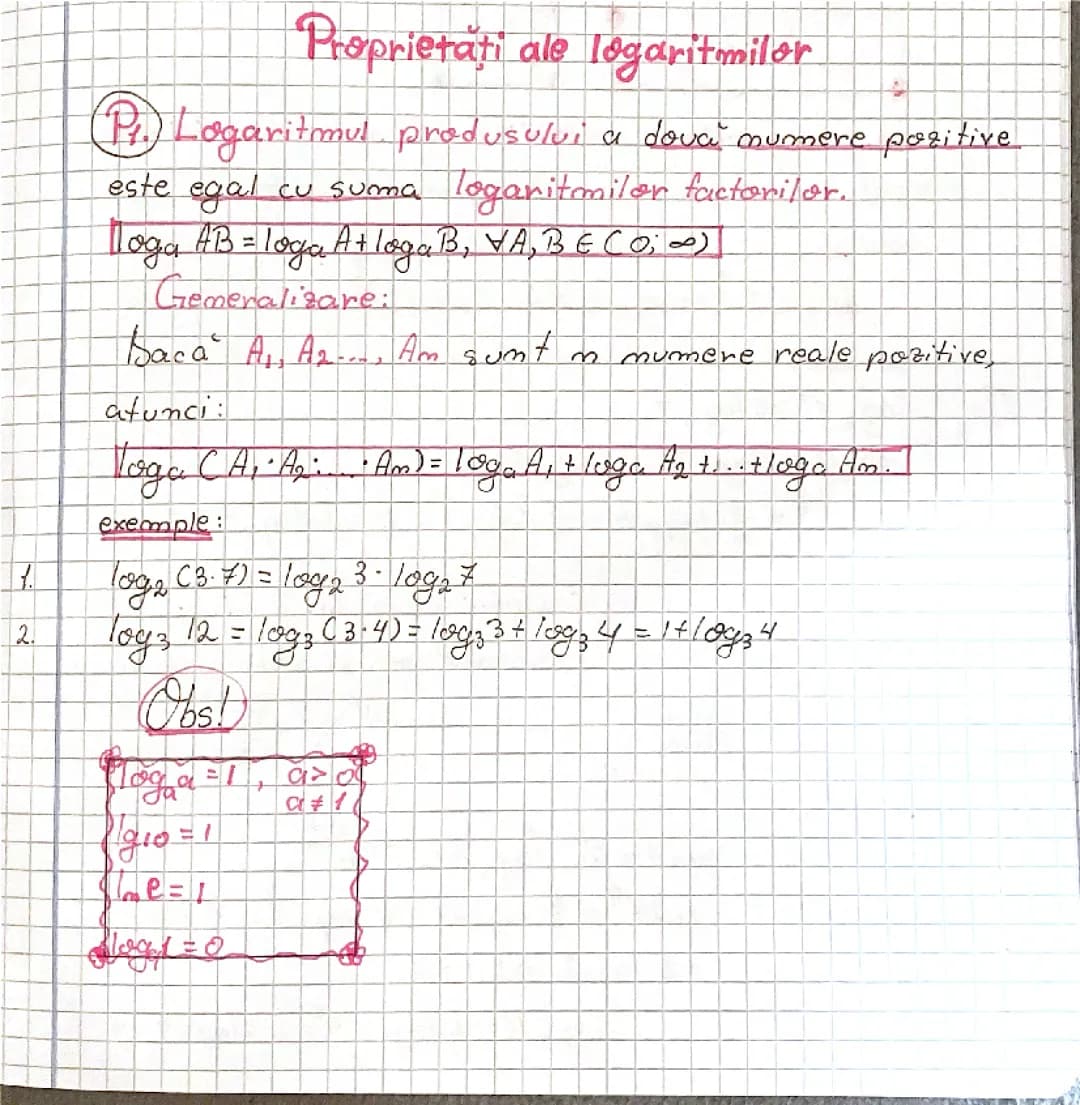 Proprietăți ale logaritmilor
P1.) Logaritmul produsului a două numere pozitive
este egal cu suma logaritmilor factorilor.
loga AB = loga A + loga B, ∀A, B ∈ (0; ∞)
Generalizare:
Dacă A₁, A₂..., An sunt n numere reale pozitive,
atunci:
loga (A₁·A₂·...·An) = loga A₁ + loga A₂ + ... + loga An.
exemple:
1. log₂ (3·7) = log₂ 3 · log₂ 7
2. log₃ 12 = log₃ (3·4) = log₃ 3 + log₃ 4 = 1 + log₃ 4
Obs!
loga a = 1, a > 0
a ≠ 1
lg10 = 1
ln e = 1
loga 1 = 0